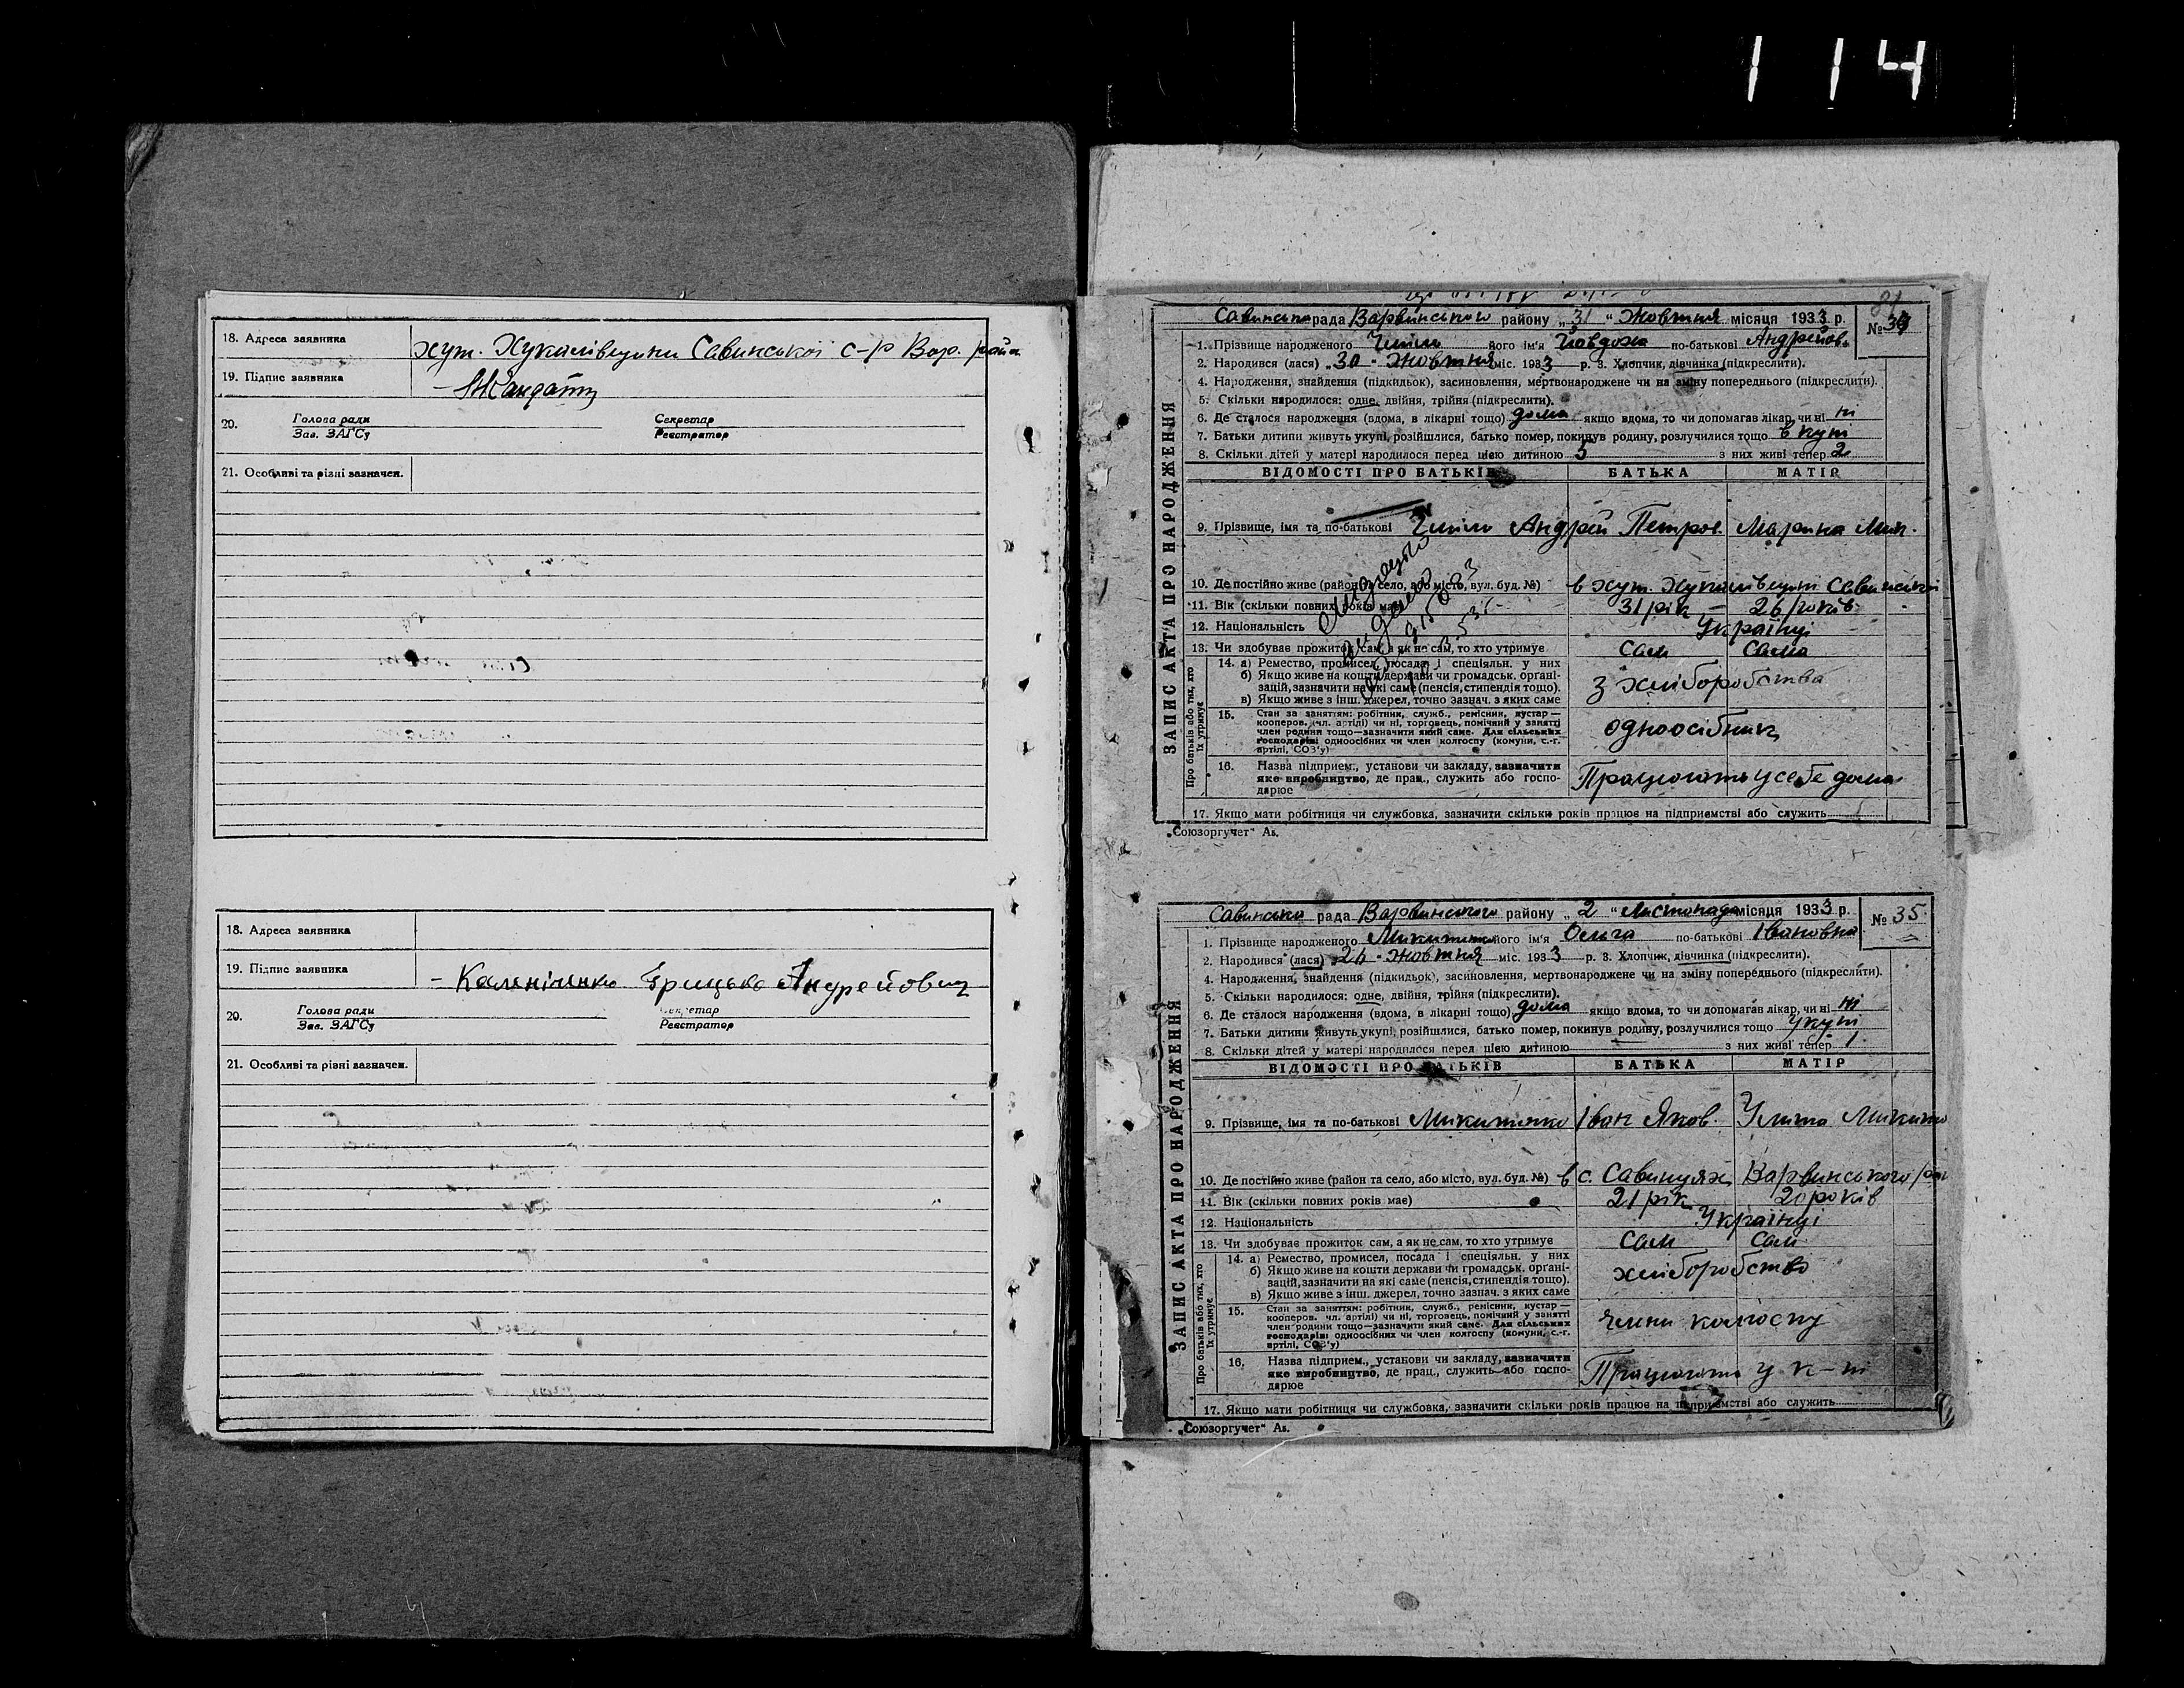 114
18. Адреса заявника хут. Хукалівщини Савинської с-р Вар. район
19. Підпис заявника
20. Голова ради Секретар
Зав. ЗАГСу Реєстратор
21. Особливі та різні зазначен.
18. Адреса заявника
19. Підпис заявника - Каленіченко Грицько Андрейович
20. Голова ради Секретар
Зав. ЗАГСу Реєстратор
21. Особливі та різні зазначен.
ЗАПИС АКТА ПРО НАРОДЖЕННЯ
Савинська рада Варвинського району „ 31 “ Жовтня місяця 1933 р. №
1. Прізвище народженого його ім'я Йовдоха по-батькові Андрейов.
2. Народився (лася) „ 30 - Жовтня міс. 1933 р. 3. Хлопчик, дівчинка (підкреслити).
4. Народження, знайдення (підкидьок), засиновлення, мертвонароджене чи на зміну попереднього (підкреслити).
5. Скільки народилося: одне, двійня, трійня (підкреслити).
6. Де сталося народження (вдома, в лікарні тощо) дома якщо вдома, то чи допомагав лікар, чи ні ні
7. Батьки дитини живуть укупі, розійшлися, батько помер, покинув родину, розлучилися тощо в купі
8. Скільки дітей у матері народилося перед цією дитиною 5 з них живі тепер 2
ВІДОМОСТІ ПРО БАТЬКІВ БАТЬКА МАТІР
9. Прізвище, імя та по-батькові Андрій Петров. Марина Мик.
10. Де постійно живе (район та село, або місто, вул. буд. №) в хут. Хукалівщині Савинської
11. Вік (скільки повних років має) 31 рік - 26 років
12. Національність Українці
13. Чи здобуває прожиток сам, а як не сам, то хто утримує сам сама
Про батьків або тих, хто їх утримує
14. а) Ремество, промисел, посада і спеціяльн. у них
б) Якщо живе на кошти держави чи громадськ. органі-
зацій, зазначити на які саме (пенсія, стипендія тощо).
в) Якщо живе з інш. джерел, точно зазнач. з яких саме
з хліборобства
15. Стан за заняттям: робітник, служб., ремісник, кустар —
кооперов. (чл. артілі) чи ні, торговець, помічний у занятті
член родини тощо—зазначити який саме. Для сільських
господарів: одноосібних чи член колгоспу (комуни, с.-г.
артілі, СОЗ'у)
одноосібники
16. Назва підприєм., установи чи закладу, зазначити
яке виробництво, де прац., служить або госпо-
дарює
Працюють у себе дома
17. Якщо мати робітниця чи службовка, зазначити скільки років працює на підприємстві або служить
„Союзоргучет“ Ая.
ЗАПИС АКТА ПРО НАРОДЖЕННЯ
Савинська рада Варвинського району „ 2 “ Листопада місяця 1933 р. № 35
1. Прізвище народженого Микитенко його ім'я Ольга по-батькові Івановна
2. Народився (лася) Жовтня міс. 1933 р. 3. Хлопчик, дівчинка (підкреслити).
4. Народження, знайдення (підкидьок), засиновлення, мертвонароджене чи на зміну попереднього (підкреслити).
5. Скільки народилося: одне, двійня, трійня (підкреслити).
6. Де сталося народження (вдома, в лікарні тощо) дома якщо вдома, то чи допомагав лікар, чи ні ні
7. Батьки дитини живуть укупі, розійшлися, батько помер, покинув родину, розлучилися тощо укупі
8. Скільки дітей у матері народилося перед цією дитиною з них живі тепер 1.
ВІДОМОСТІ ПРО БАТЬКІВ БАТЬКА МАТІР
9. Прізвище, імя та по-батькові Микитенко Іван Яков. Улита
10. Де постійно живе (район та село, або місто, вул. буд. №) в с. Савинцях Варвинського рай
11. Вік (скільки повних років має) 21 рік 20 років
12. Національність Українці
13. Чи здобуває прожиток сам, а як не сам, то хто утримує сам сам
Про батьків або тих, хто їх утримує
14. а) Ремество, промисел, посада і спеціяльн. у них
б) Якщо живе на кошти держави чи громадськ. органі-
зацій, зазначити на які саме (пенсія, стипендія тощо).
в) Якщо живе з інш. джерел, точно зазнач. з яких саме
хліборобство
15. Стан за заняттям: робітник, служб., ремісник, кустар —
кооперов. чл. артілі) чи ні, торговець, помічний у занятті
член родини тощо—зазначити який саме. Для сільських
господарів: одноосібних чи член колгоспу (комуни, с.-г.
артілі, СОЗ'у)
члени колгоспу
16. Назва підприєм., установи чи закладу, зазначити
яке виробництво, де прац., служить або госпо-
дарює
Працюють у к-пі
17. Якщо мати робітниця чи службовка, зазначити скільки років працює на підприємстві або служить
„Союзоргучет“ Ая.